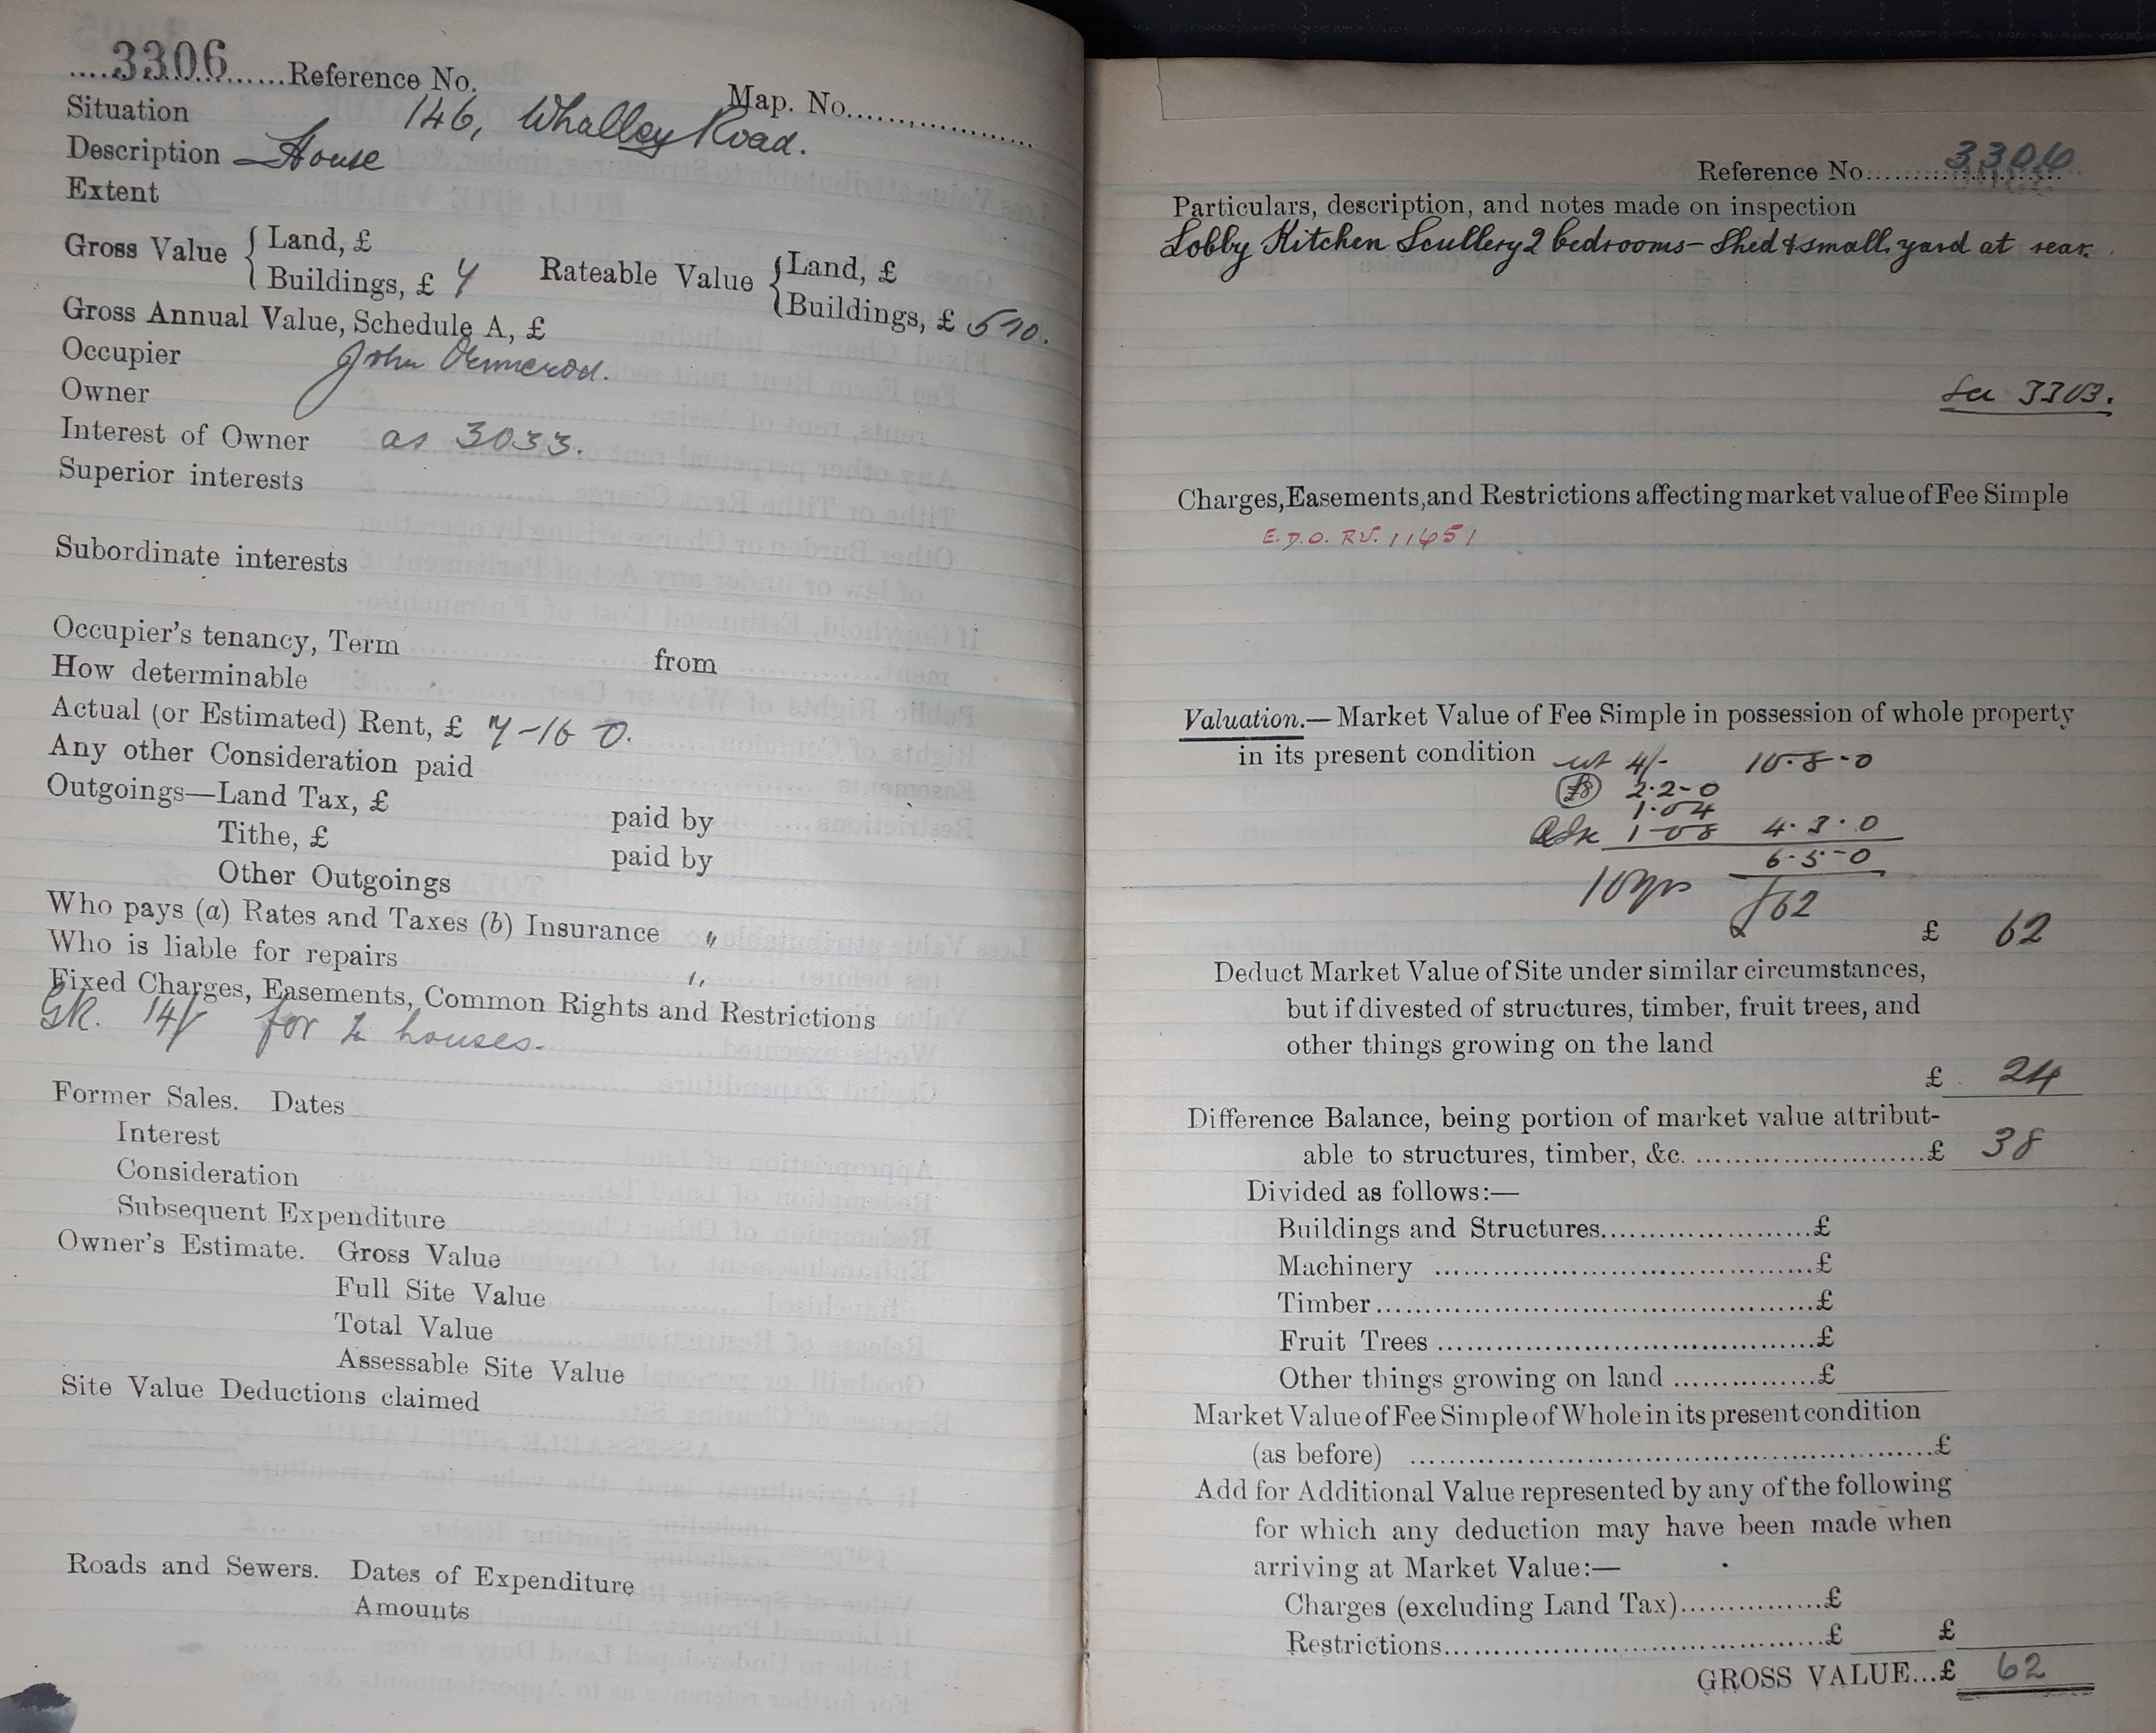 ....3306......Reference No.
Map. No..................
Situation 146, Whalley Road.
Description House
Extent
Gross Value { Land, £
Buildings, £ 7
Rateable Value { Land, £
Buildings, £ 5 10.
Gross Annual Value, Schedule A, £
Occupier John Ormerod.
Owner
Interest of Owner as 3033.
Superior interests
Subordinate interests
Occupier's tenancy, Term from
How determinable
Actual (or Estimated) Rent, £ 7-16 0.
Any other Consideration paid
Outgoings—Land Tax, £ paid by
Tithe, £ paid by
Other Outgoings
Who pays (a) Rates and Taxes (b) Insurance "
Who is liable for repairs "
Fixed Charges, Easements, Common Rights and Restrictions
GR. 14/ for houses.
Former Sales. Dates
Interest
Consideration
Subsequent Expenditure
Owner's Estimate. Gross Value
Full Site Value
Total Value
Assessable Site Value
Site Value Deductions claimed
Roads and Sewers. Dates of Expenditure
Amounts
Reference No. 3306
Particulars, description, and notes made on inspection
Lobby Kitchen Scullery 2 bedrooms - Shed & small yard at rear.
See 3303.
Charges, Easements, and Restrictions affecting market value of Fee Simple
E.D.O. RV. 11651
Valuation.—Market Value of Fee Simple in possession of whole property
in its present condition 4/- 10-8-0
£8 2-2-0
1-04
1-08 4-3-0
6-5-0
10 yrs £62
£ 62
Deduct Market Value of Site under similar circumstances,
but if divested of structures, timber, fruit trees, and
other things growing on the land
£ 24
Difference Balance, being portion of market value attribut-
able to structures, timber, &c. ........................£ 38
Divided as follows:—
Buildings and Structures......................£
Machinery ......................................£
Timber............................................£
Fruit Trees ......................................£
Other things growing on land ...............£
Market Value of Fee Simple of Whole in its present condition
(as before) ....................................................£
Add for Additional Value represented by any of the following
for which any deduction may have been made when
arriving at Market Value:—
Charges (excluding Land Tax)...............£
Restrictions......................................£ £
GROSS VALUE...£ 62